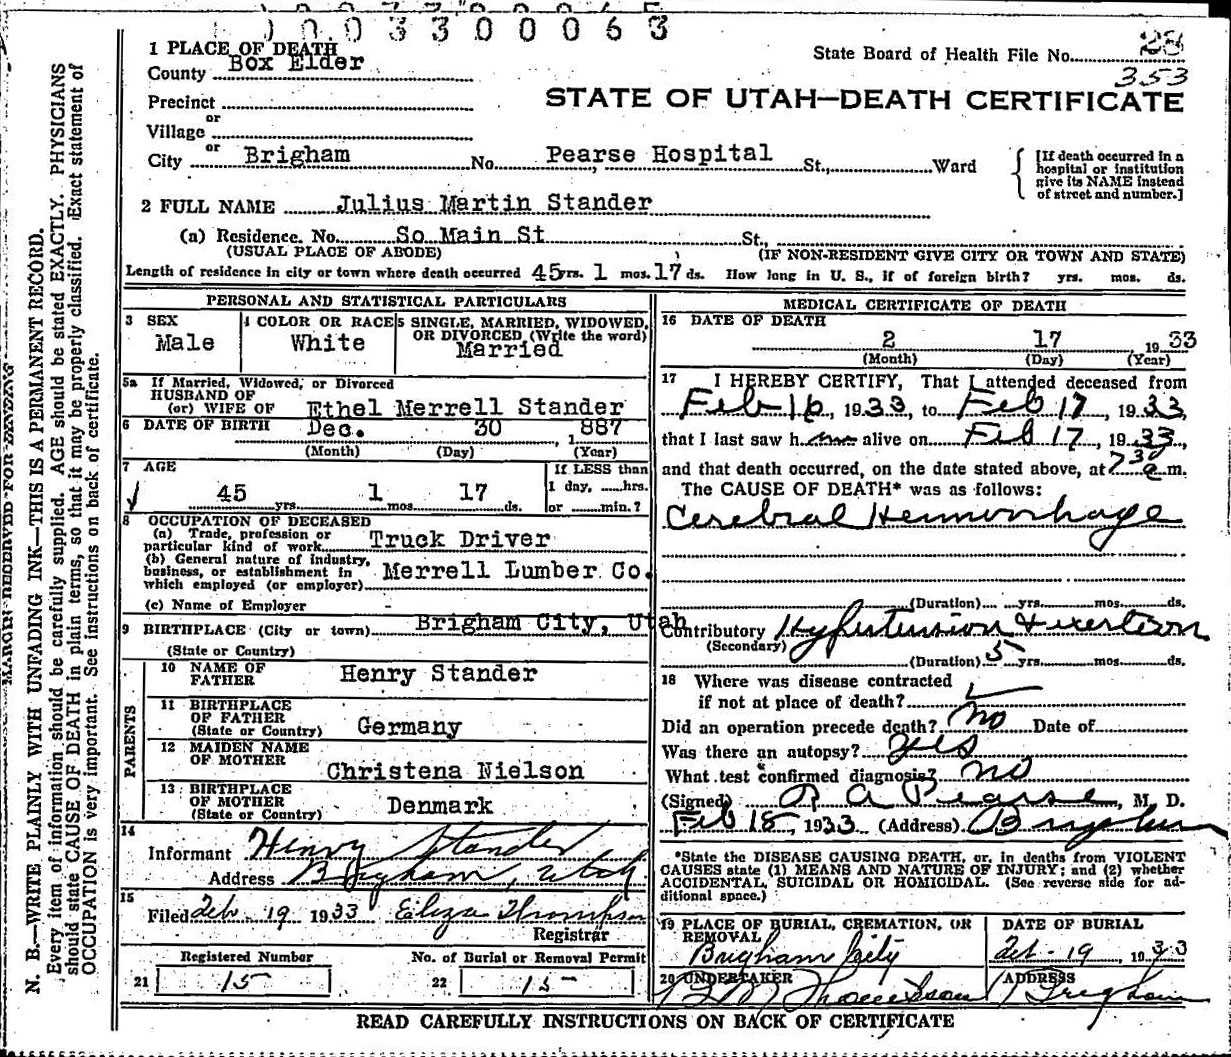 0033000063
1 PLACE OF DEATH
State Board of Health File No. 28
353
County Box Elder
Precinct
or
Village
STATE OF UTAH—DEATH CERTIFICATE
or
City Brigham No. Pearse Hospital St., Ward
[If death occurred in a hospital or institution give its NAME instead of street and number.]
2 FULL NAME Julius Martin Stander
(a) Residence. No. So Main St St.,
(USUAL PLACE OF ABODE) (IF NON-RESIDENT GIVE CITY OR TOWN AND STATE)
Length of residence in city or town where death occurred 45 yrs. 1 mos. 17 ds. How long in U. S., if of foreign birth? yrs. mos. ds.
PERSONAL AND STATISTICAL PARTICULARS
3 SEX 4 COLOR OR RACE 5 SINGLE, MARRIED, WIDOWED,
OR DIVORCED (Write the word)
Male White Married
5a If Married, Widowed, or Divorced
HUSBAND OF
(or) WIFE OF Ethel Merrell Stander
6 DATE OF BIRTH Dec. 30, 1887
(Month) (Day) (Year)
7 AGE If LESS than
45 yrs. 1 mos. 17 ds. 1 day, hrs.
or min.?
8 OCCUPATION OF DECEASED
(a) Trade, profession or
particular kind of work Truck Driver
(b) General nature of industry,
business, or establishment in
which employed (or employer) Merrell Lumber Co.
(c) Name of Employer
9 BIRTHPLACE (City or town) Brigham City, Utah
(State or Country)
PARENTS
10 NAME OF
FATHER Henry Stander
11 BIRTHPLACE
OF FATHER
(State or Country) Germany
12 MAIDEN NAME
OF MOTHER Christena Nielson
13 BIRTHPLACE
OF MOTHER
(State or Country) Denmark
14
Informant Henry Stander
Address Brigham, Utah
15
Filed Feb - 19 1933 Eliza Thompson
Registrar
Registered Number No. of Burial or Removal Permit
21 15 22 15
MEDICAL CERTIFICATE OF DEATH
16 DATE OF DEATH
2 17 1933
(Month) (Day) (Year)
17 I HEREBY CERTIFY, That I attended deceased from
Feb 16, 1933, to Feb 17, 1933,
that I last saw him alive on Feb 17, 1933,
and that death occurred, on the date stated above, at 7 30 a m.
The CAUSE OF DEATH* was as follows:
Cerebral Hemorrhage
(Duration) yrs. mos. ds.
Contributory Hypertension & exertion
(Secondary)
(Duration) 5 yrs. mos. ds.
18 Where was disease contracted
if not at place of death?
Did an operation precede death? no Date of
Was there an autopsy? yes
What test confirmed diagnosis? no
(Signed) R A Pearse, M. D.
Feb 18, 1933 (Address) Brigham
*State the DISEASE CAUSING DEATH, or, in deaths from VIOLENT
CAUSES state (1) MEANS AND NATURE OF INJURY; and (2) whether
ACCIDENTAL, SUICIDAL OR HOMICIDAL. (See reverse side for ad-
ditional space.)
19 PLACE OF BURIAL, CREMATION, OR DATE OF BURIAL
REMOVAL
Brigham City Feb - 19 1933
20 UNDERTAKER ADDRESS
Brigham
READ CAREFULLY INSTRUCTIONS ON BACK OF CERTIFICATE
MARGIN RESERVED FOR BINDING
N. B.—WRITE PLAINLY WITH UNFADING INK—THIS IS A PERMANENT RECORD.
Every item of information should be carefully supplied. AGE should be stated EXACTLY. PHYSICIANS
should state CAUSE OF DEATH in plain terms, so that it may be properly classified. Exact statement of
OCCUPATION is very important. See instructions on back of certificate.